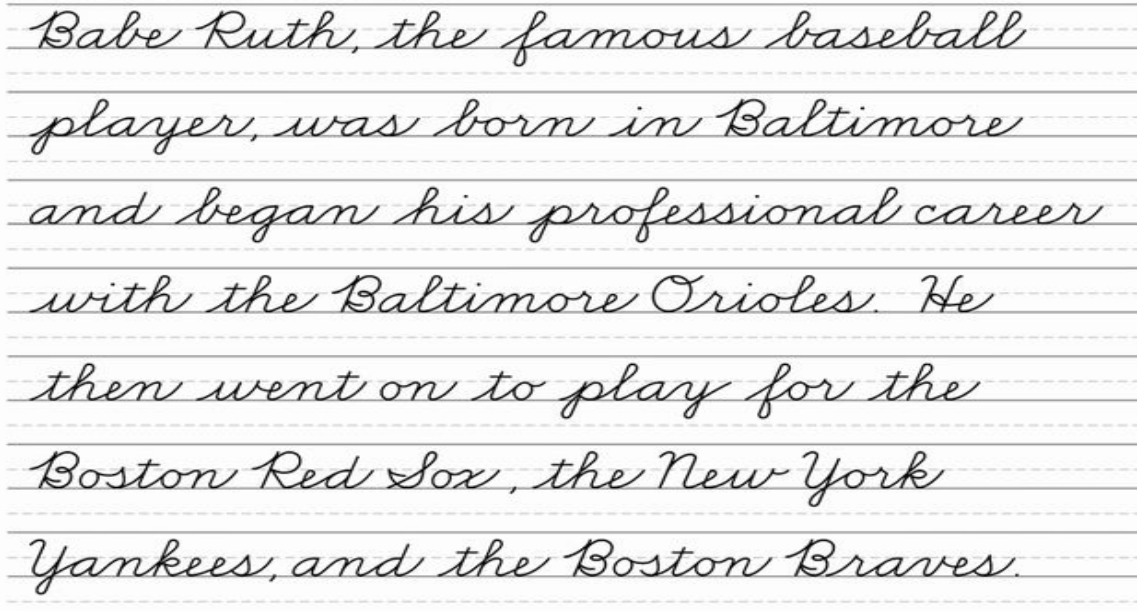 Babe Ruth, the famous baseball
player, was born in Baltimore
and began his professional career
with the Baltimore Orioles. He
then went on to play for the
Boston Red Sox, the New York
Yankees, and the Boston Braves.